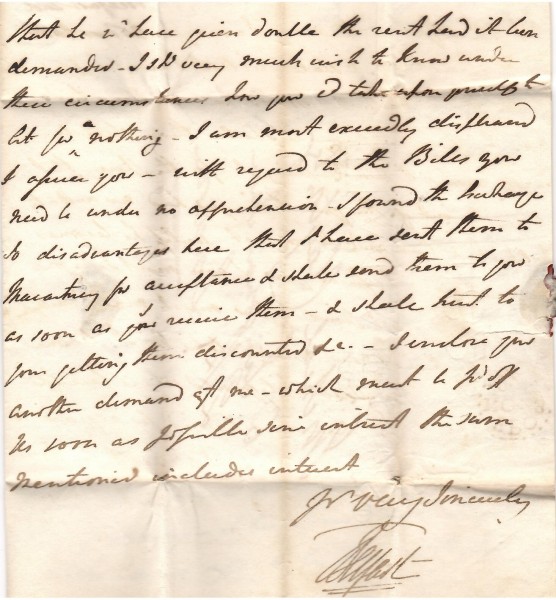 that he wd have given double the rent had it been
demanded - I shd very much wish to know under
these circumstances how you cd take upon yourself to
let for a nothing - I am most exceedly displeased
I assure you - with regard to the Bills you
need be under no apprehension - I found the Exchange
so disadvantages here that I have sent them to
Macartney for acceptance & shall send them to you
as soon as I receive them - & shall trust to
your getting them discounted &c. - I enclose you
another demand of me - which must be pd off
as soon as possible since interest the sum
mentioned includes interest
Yrs very Sincerely
Belfast